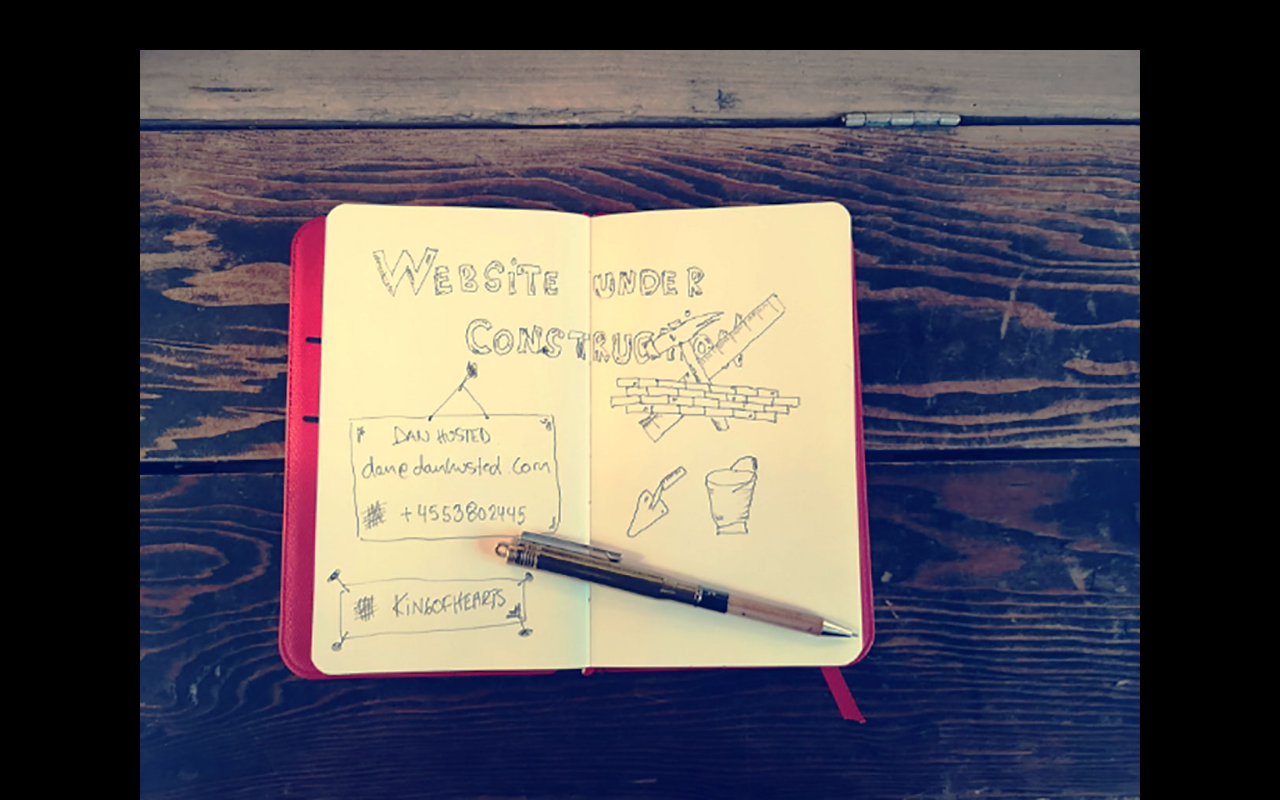 WEBSiTE UNDER
CONSTRUCTION
DAN HUSTED
dan@danhusted.com
# +4553802445
# KiNGOFHEARTS